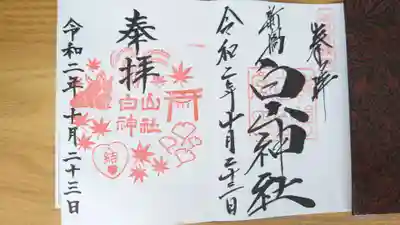 奉拝
新潟
白山神社
令和二年十月二十三日
奉拝
白山
神社
結
令和二年 十月 二十三日